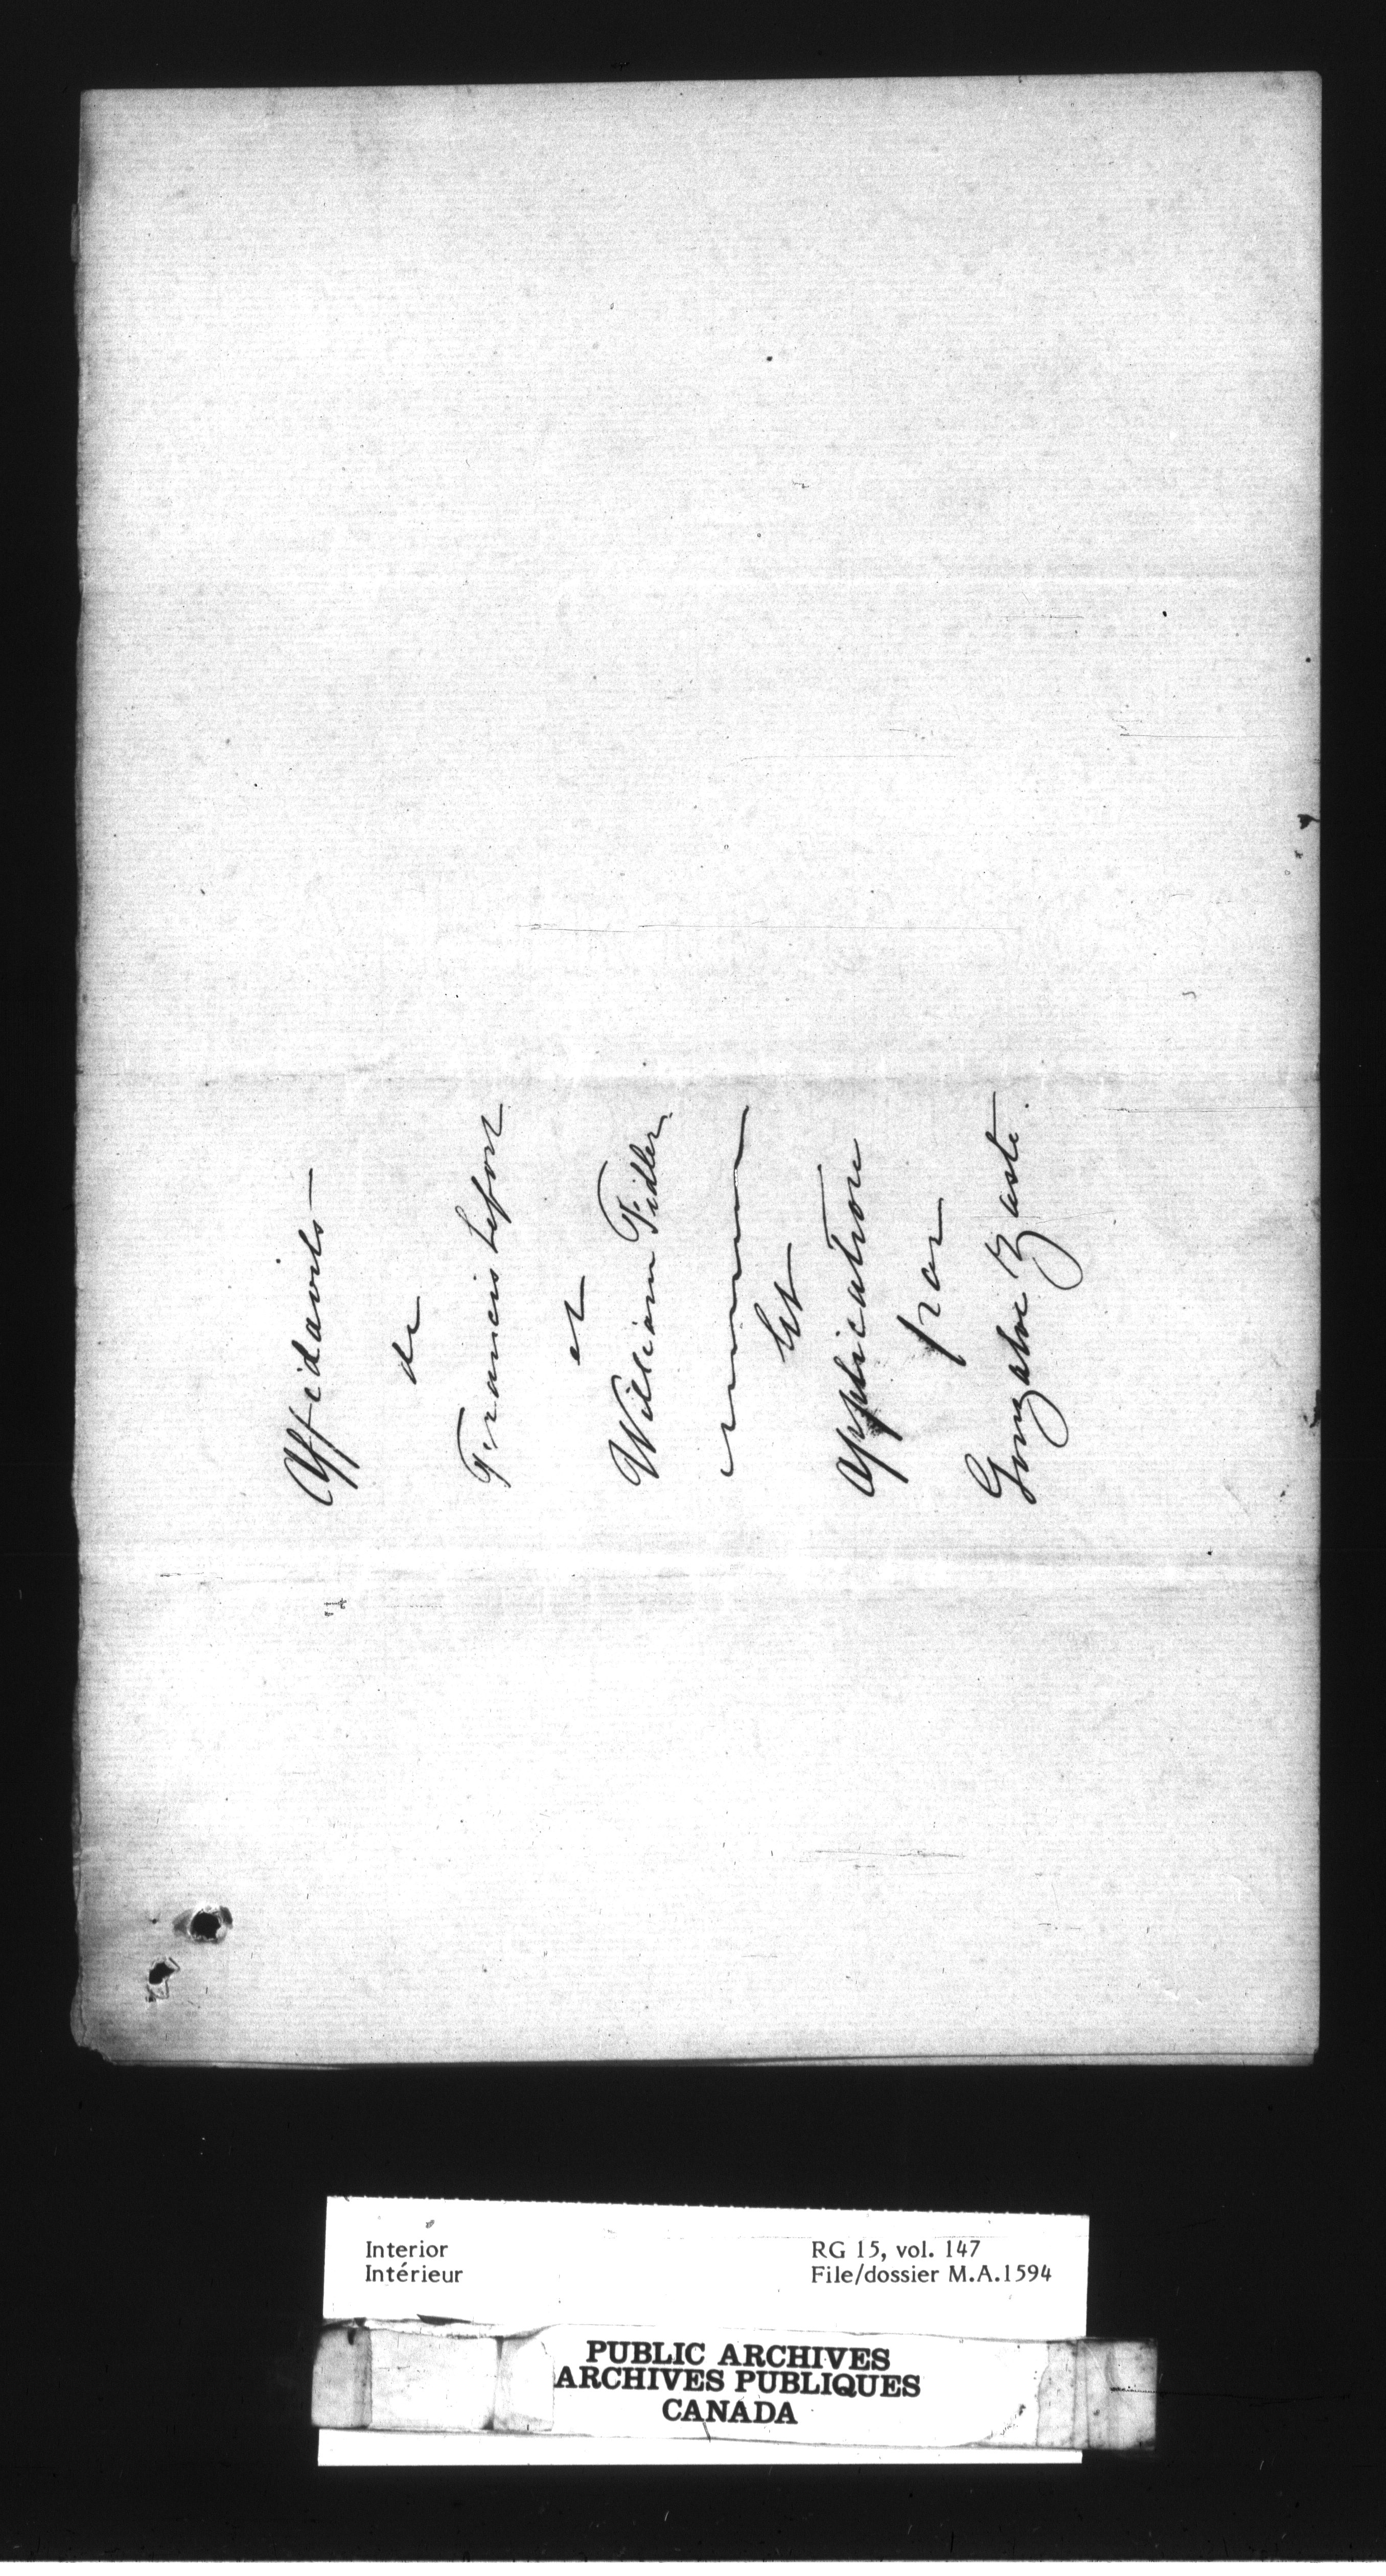 Affidavits
de
Francis Lefort
et
William Fidler
Et
Application
par
Gonzalve Zasté.
Interior
Intérieur
RG 15, vol. 147
File/dossier M.A.1594
PUBLIC ARCHIVES
ARCHIVES PUBLIQUES
CANADA